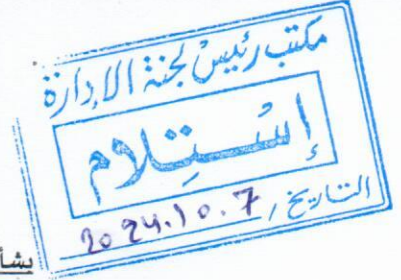 مكتب رئيس لجنة الإدارة
إستلام
التاريخ / 2024.10.7
بشأ